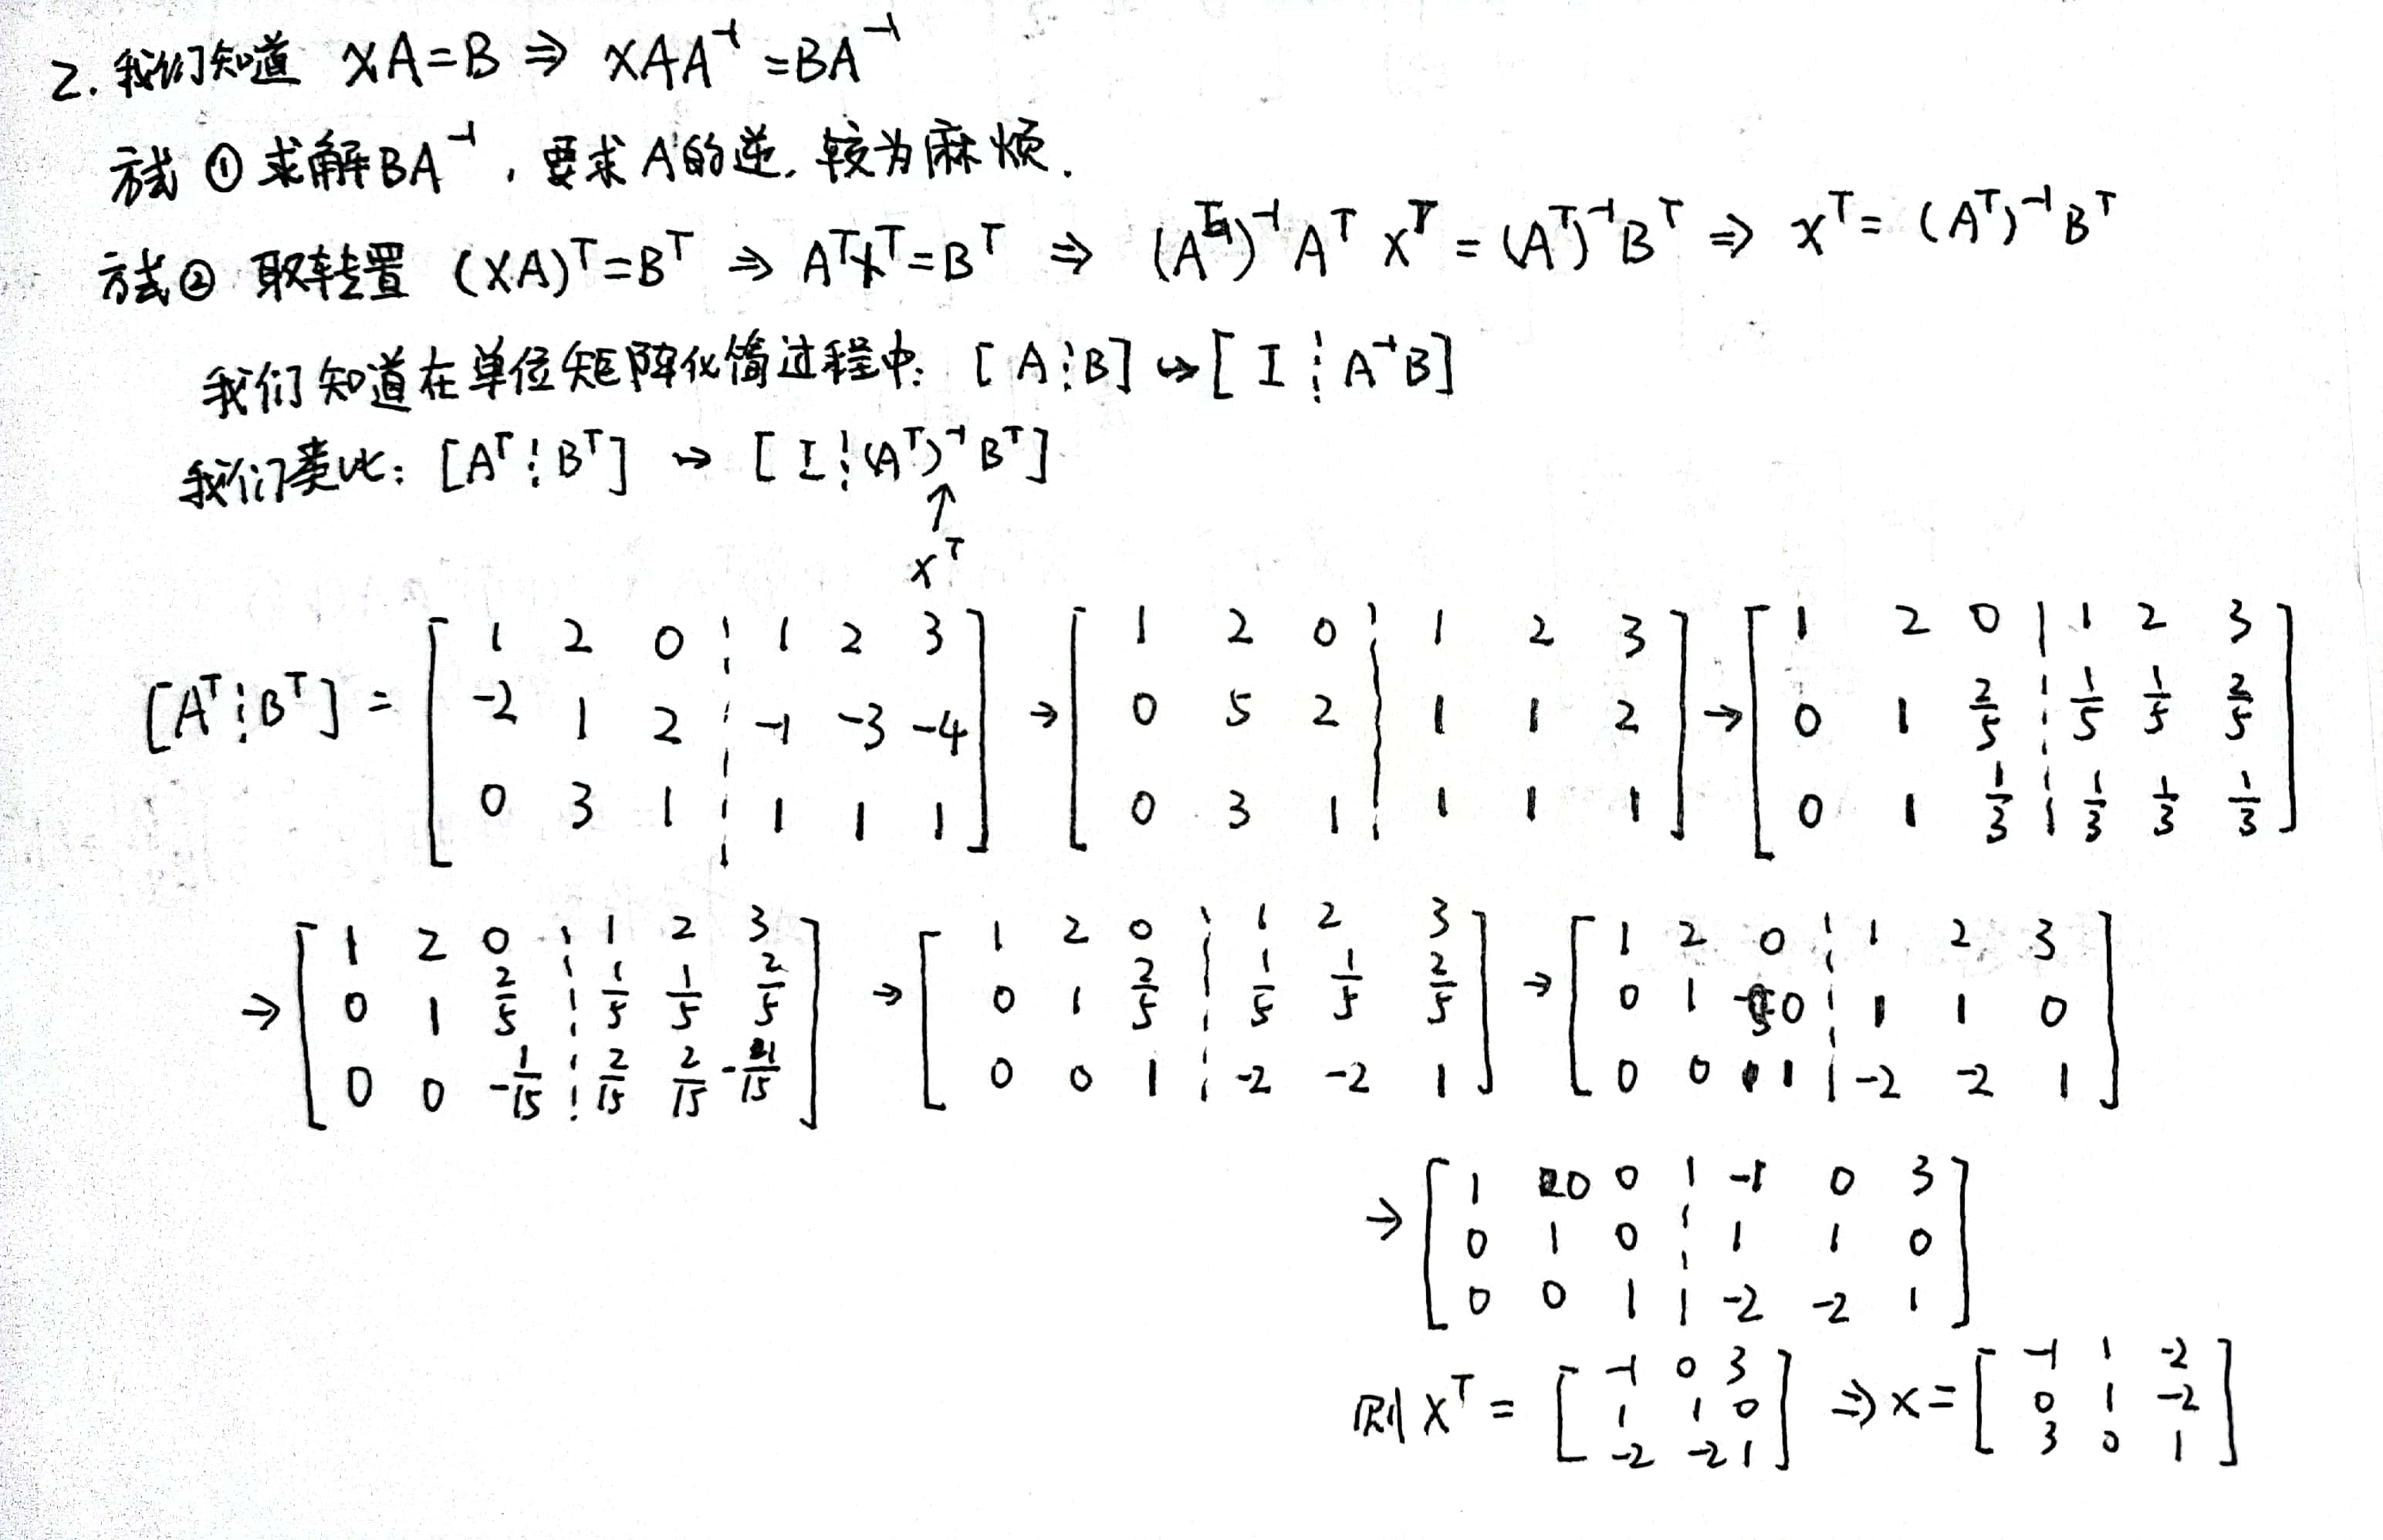 2. 我们知道 XA=B ⇒ XAA⁻¹=BA⁻¹
方式 ① 求解BA⁻¹, 要求A的逆, 较为麻烦.
方式② 取转置 (XA)ᵀ=Bᵀ ⇒ AᵀXᵀ=Bᵀ ⇒ (Aᵀ)⁻¹Aᵀ Xᵀ=(Aᵀ)⁻¹Bᵀ ⇒ Xᵀ=(Aᵀ)⁻¹Bᵀ
我们知道在单位矩阵化简过程中: [A⋮B] → [I⋮A⁻¹B]
我们类比: [Aᵀ⋮Bᵀ] → [I⋮(Aᵀ)⁻¹Bᵀ]
↑
Xᵀ
[Aᵀ⋮Bᵀ] = [1 2 0 ⋮ 1 2 3; -2 1 2 ⋮ -1 -3 -4; 0 3 1 ⋮ 1 1 1] → [1 2 0 ⋮ 1 2 3; 0 5 2 ⋮ 1 1 2; 0 3 1 ⋮ 1 1 1] → [1 2 0 ⋮ 1 2 3; 0 1 2/5 ⋮ 1/5 1/5 2/5; 0 1 1/3 ⋮ 1/3 1/3 1/3]
→ [1 2 0 ⋮ 1 2 3; 0 1 2/5 ⋮ 1/5 1/5 2/5; 0 0 -1/15 ⋮ 2/15 2/15 -1/15] → [1 2 0 ⋮ 1 2 3; 0 1 2/5 ⋮ 1/5 1/5 2/5; 0 0 1 ⋮ -2 -2 1] → [1 2 0 ⋮ 1 2 3; 0 1 0 ⋮ 1 1 0; 0 0 1 ⋮ -2 -2 1]
→ [1 0 0 ⋮ -1 0 3; 0 1 0 ⋮ 1 1 0; 0 0 1 ⋮ -2 -2 1]
则 Xᵀ = [-1 0 3; 1 1 0; -2 -2 1] ⇒ X = [-1 1 -2; 0 1 -2; 3 0 1]